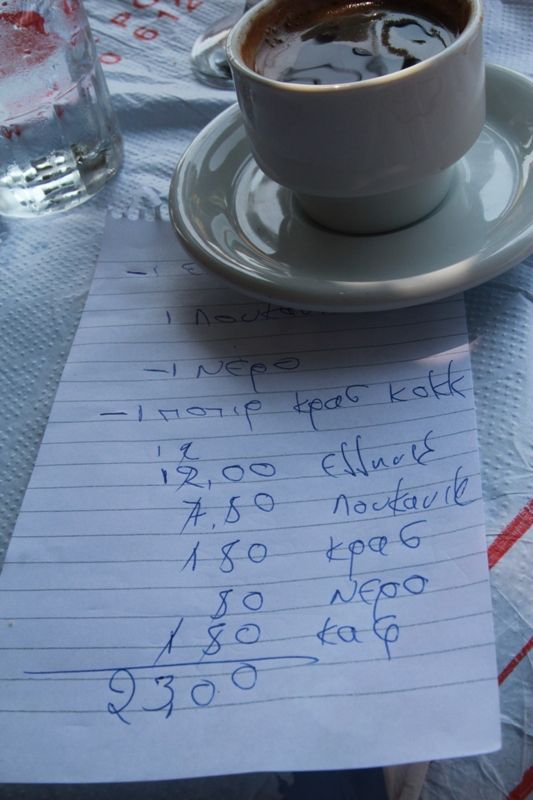 - 1 Ε
1 Λουκαν
- 1 νέρο
- 1 ποτιρ κρασ κοκκ
12
12,00 ελληνικ
7,50 Λουκανικ
1 50 κρασ
50 νερο
1 50 καφ
23,00